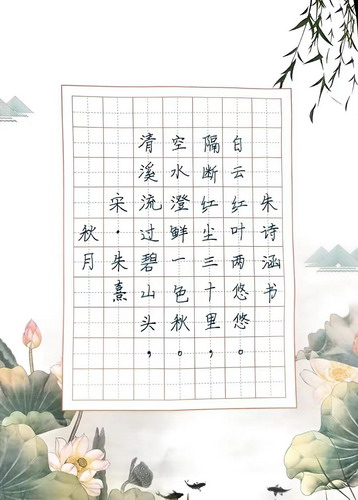 秋月
宋·朱熹
清溪流过碧山头，
空水澄鲜一色秋。
隔断红尘三十里，
白云红叶两悠悠。
朱诗涵书